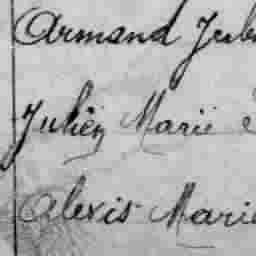 Armand Jul
Julien Marie
Alexis Marie